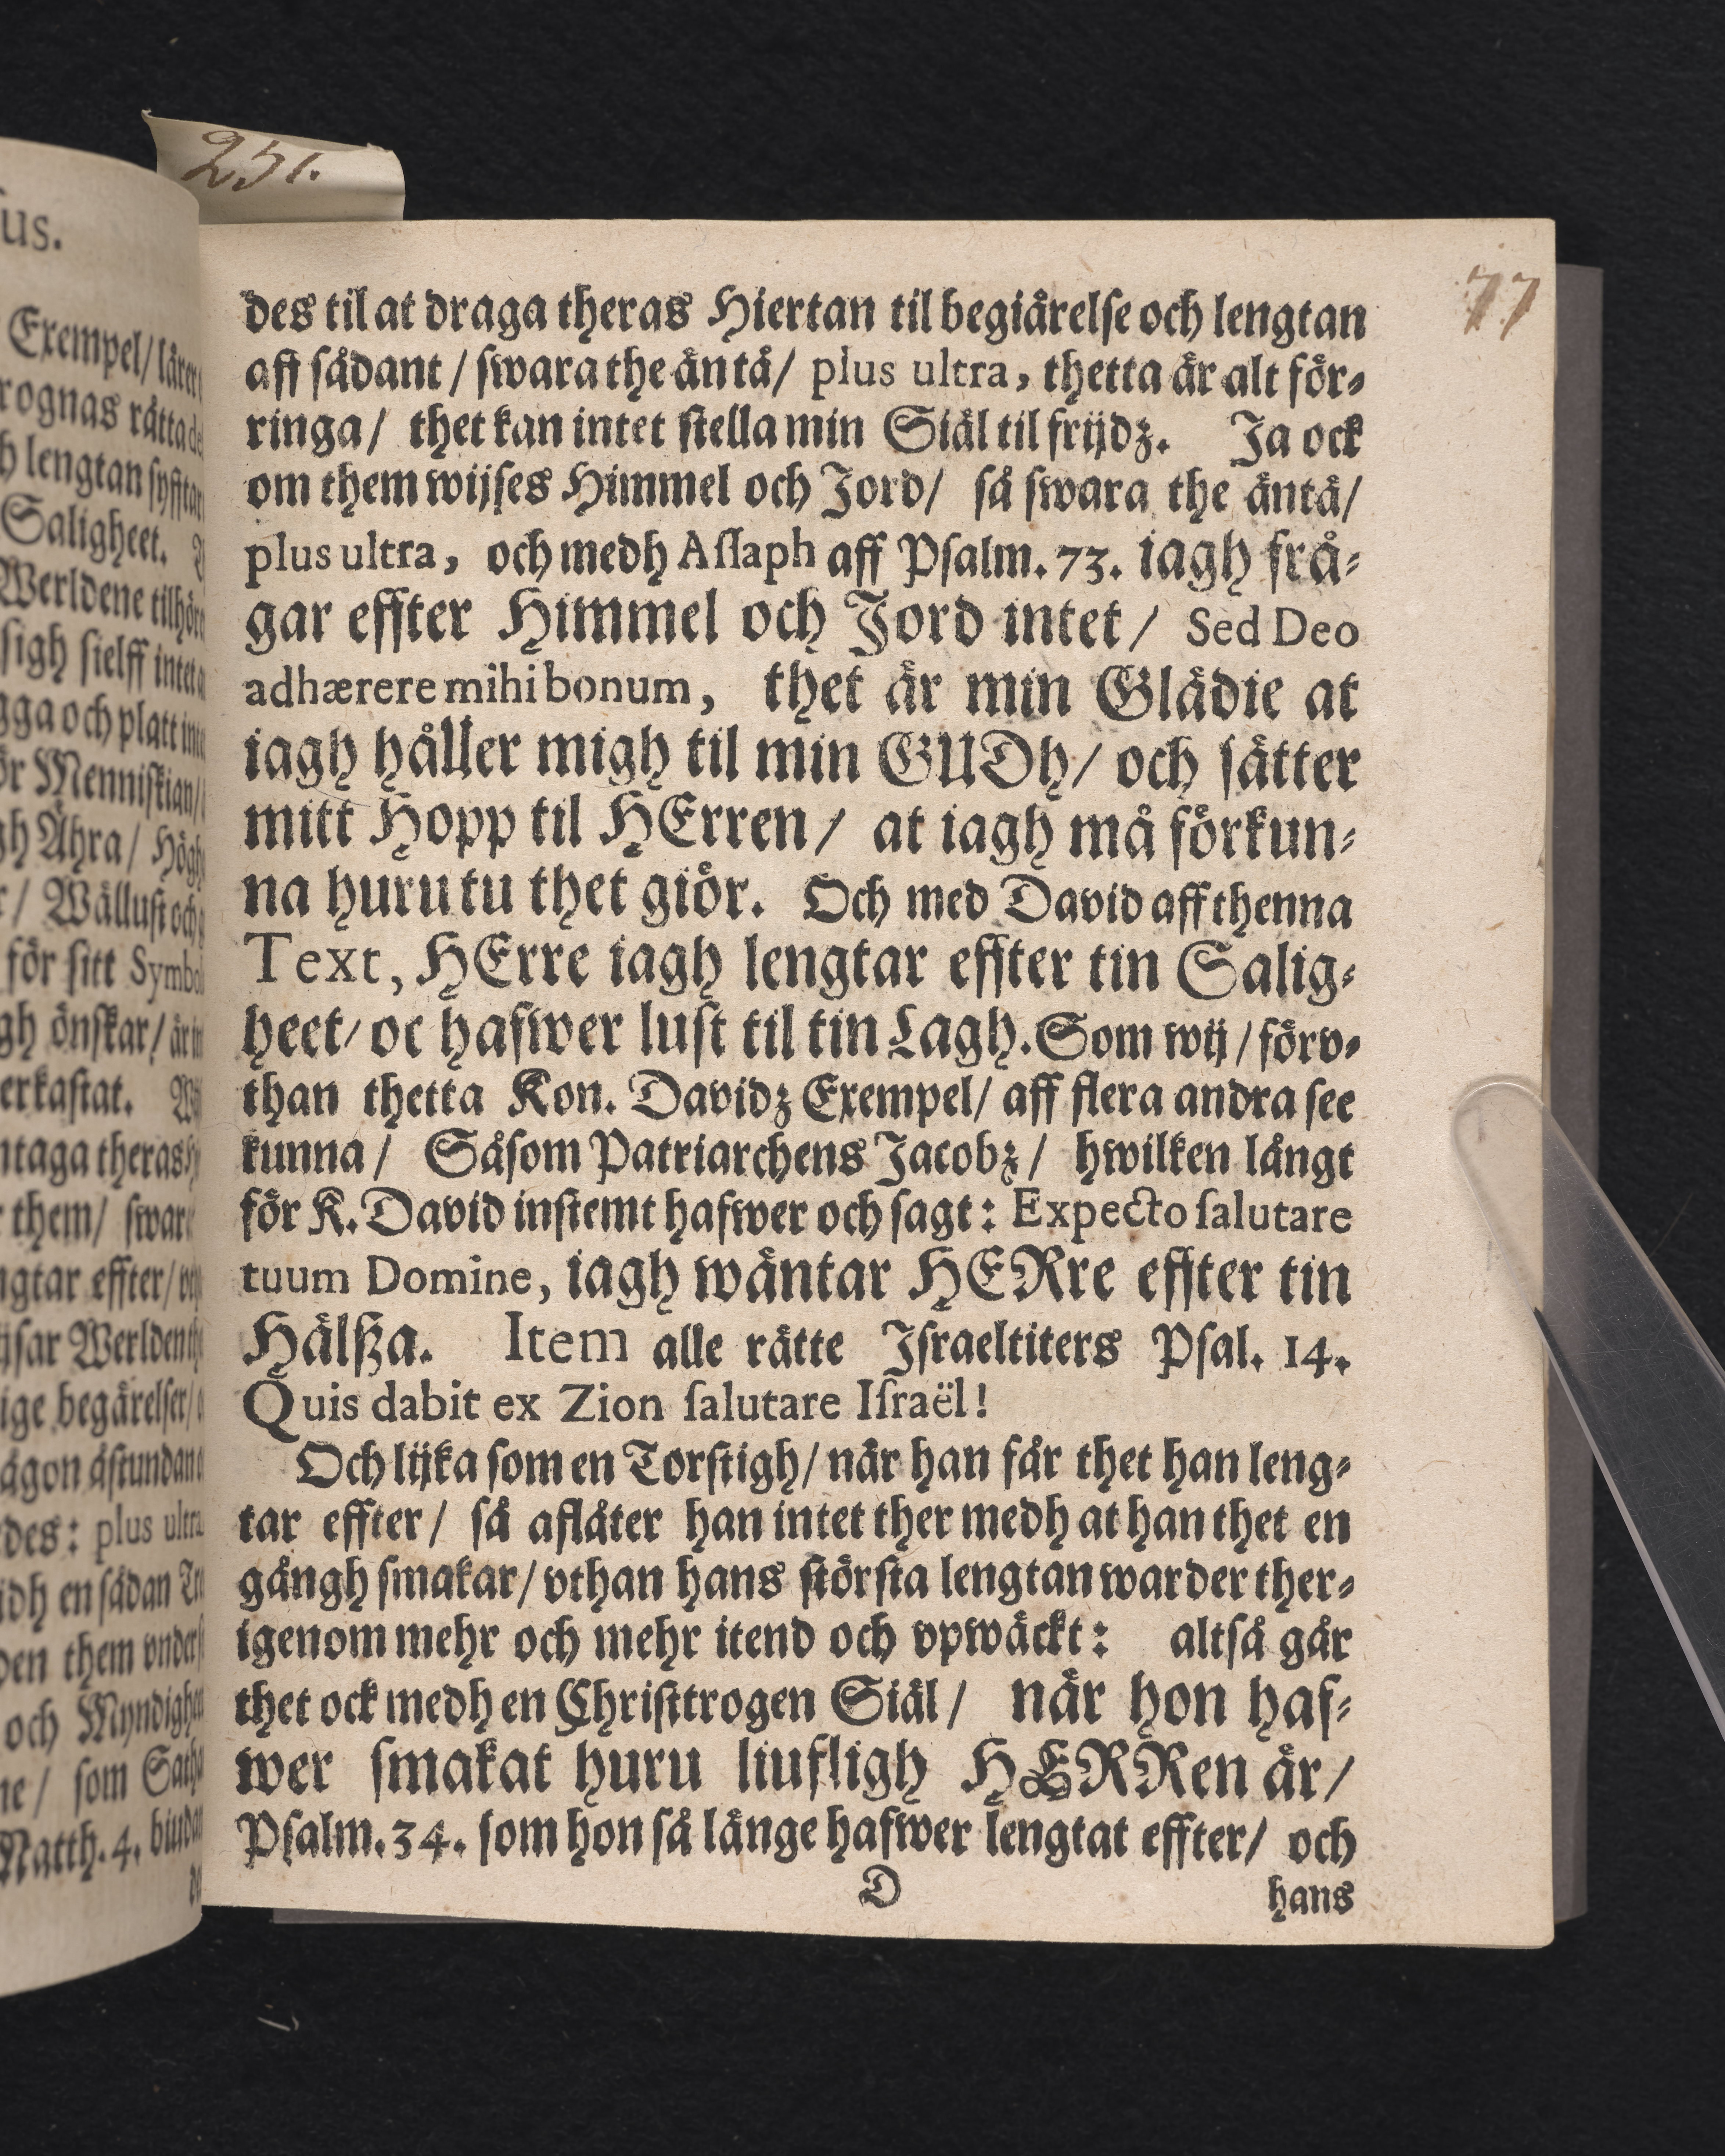 251.
77
us.
Exempel/
rognas rätta
lengtan
Saligheet.
Werldene
sigh sielff
och platt
Menniskian/
Ähra/
Wällust
för sitt
önskar/
erkastat.
ntaga theras
them/
effter/
Werlden
ige begärelser/
ågon
des: plus
en sådan
them
och
som
Matth. 4.
des til at draga theras Hiertan til begiärelse och lengtan
aff sådant / swara the ändå/ plus ultra, thetta är alt för-
ringa/ thet kan intet stella min Siäl til frijdz. Ja ock
om them wijses Himmel och Jord/ så swara the äntå/
plus ultra, och medh Assaph aff Psalm. 73. iagh frå-
gar effter Himmel och Jord intet / Sed Deo
adhærere mihi bonum, thet är min Glädie at
iagh håller migh til min GUDh/ och sätter
mitt Hopp til HErren / at iagh må förkun-
na huru tu thet giör. Och med David aff thenna
Text, HErre iagh lengtar effter tin Salig-
heet/ oc hafwer lust til tin Lagh. Som wij / förv-
than thetta Kon. Davidz Exempel/ aff flera andra see
kunna / Såsom Patriarchens Jacobz / hwilken långt
för K. David instemt hafwer och sagt: Expecto salutare
tuum Domine, iagh wäntar HERre effter tin
Hälsza. Item alle rätte Israeltiters Psal. 14.
Quis dabit ex Zion salutare Israël!
Och lijka som en Torstigh/ när han får thet han leng-
tar effter / så aflåter han intet ther medh at han thet en
gångh smakar/ vthan hans största lengtan warder ther-
igenom mehr och mehr itend och vpwäckt: altså går
thet ock medh en Christtrogen Siäl / när hon haf-
wer smakat huru liufligh HERRen är/
Psalm. 34. som hon så länge hafwer lengtat effter/ och
D
hans